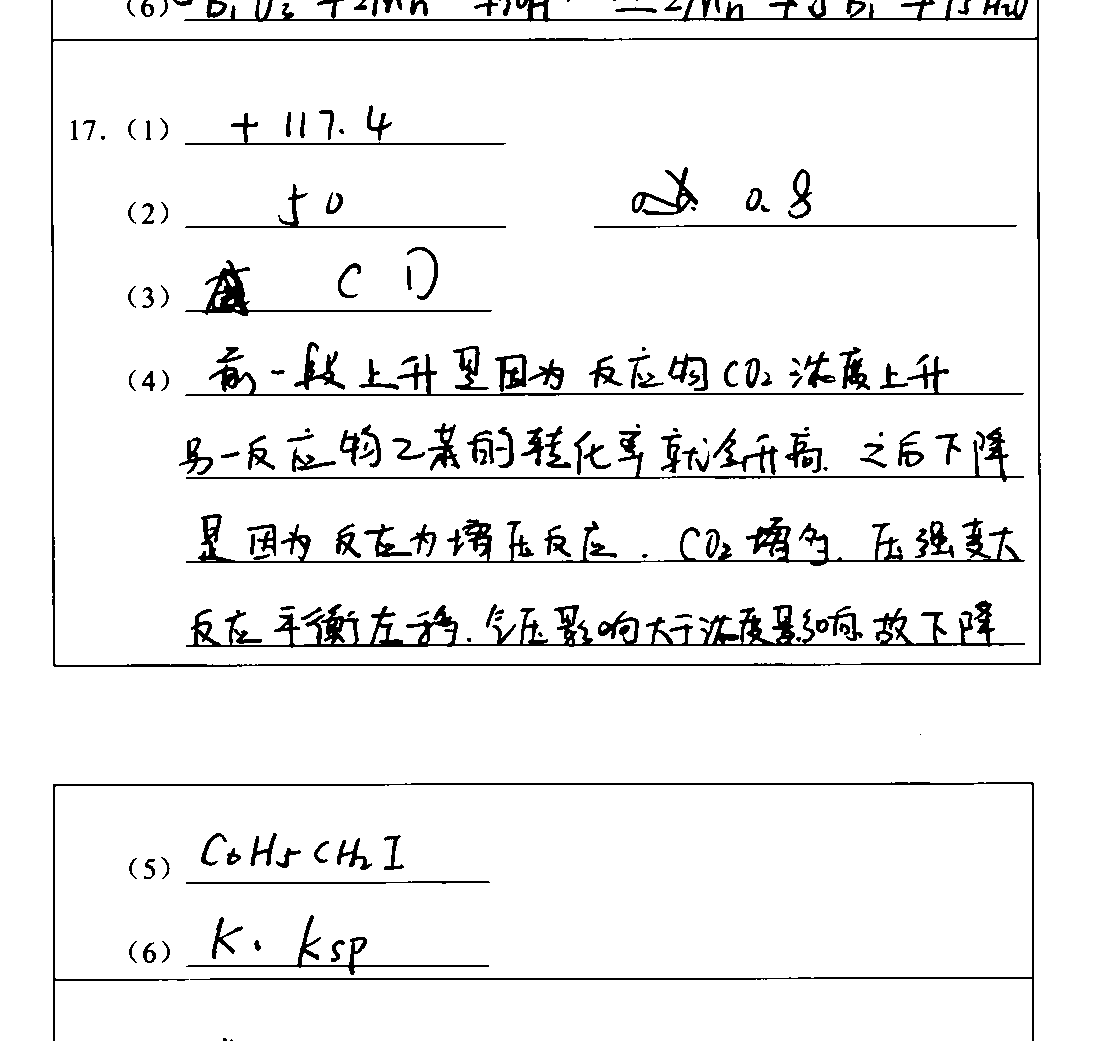 (6) Bi O3 + 2Mn + 10H = 2Mn + 5 Bi + 15 H2O
17. (1) +117.4
(2) 50 0.8
(3) C D
(4) 前一段上升是因为反应物CO2浓度上升
另一反应物乙苯的转化率就会升高. 之后下降
是因为反应为增压反应. CO2增多. 压强变大
反应平衡左移. 气压影响大于浓度影响 故下降
(5) C6H5CH2I
(6) K · Ksp